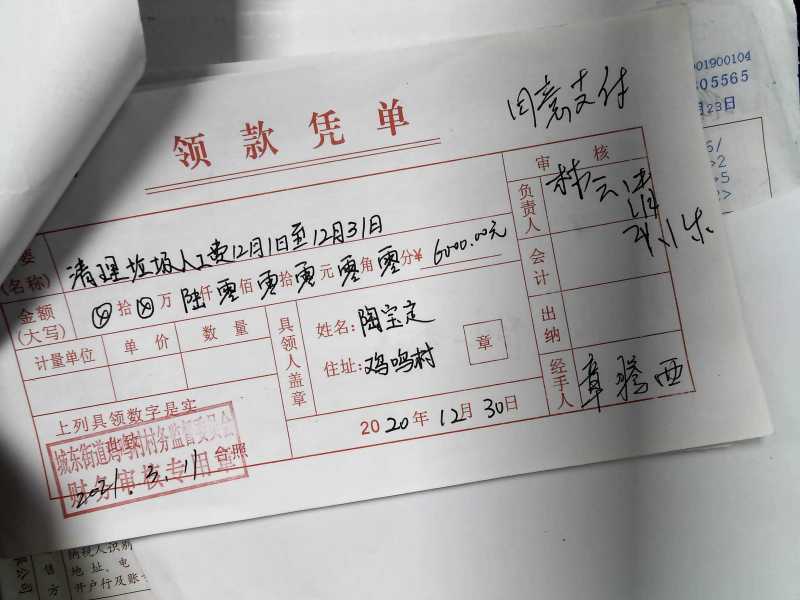 001900104
05565
23日
同意支付
领款凭单
审核
负责人
会计
出纳
经手人
章腾西
要
(名称)
清理垃圾人工费12月1日至12月31日
金额
(大写)
拾 万 陆仟零佰零拾零元零角零分¥ 6000.00元
计量单位 单价 数量
具领人盖章
姓名:陶宝定
住址:鸡鸣村
章
上列具领数字是实
此致 台照
2020年12月30日
城东街道鸡鸣村村务监督委员会
财务审核专用章
2021.3.11
纳税人识别
地址、电
开户行及账
售
方